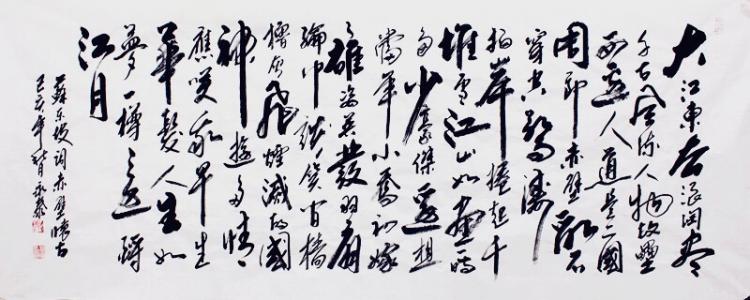 大江東去浪淘盡
千古風流人物故壘
西邊人道是三國
周郎赤壁亂石
穿空驚濤
拍岸捲起千
堆雪江山如畫一時
多少豪傑遙想
當年小喬初嫁
了雄姿英發羽扇
綸巾談笑間檣
櫓灰飛煙滅故國
神遊多情
應笑我早生
華髮人生如
夢一樽還酹
江月
蘇東坡詞赤壁懷古
己亥年秋月永泰